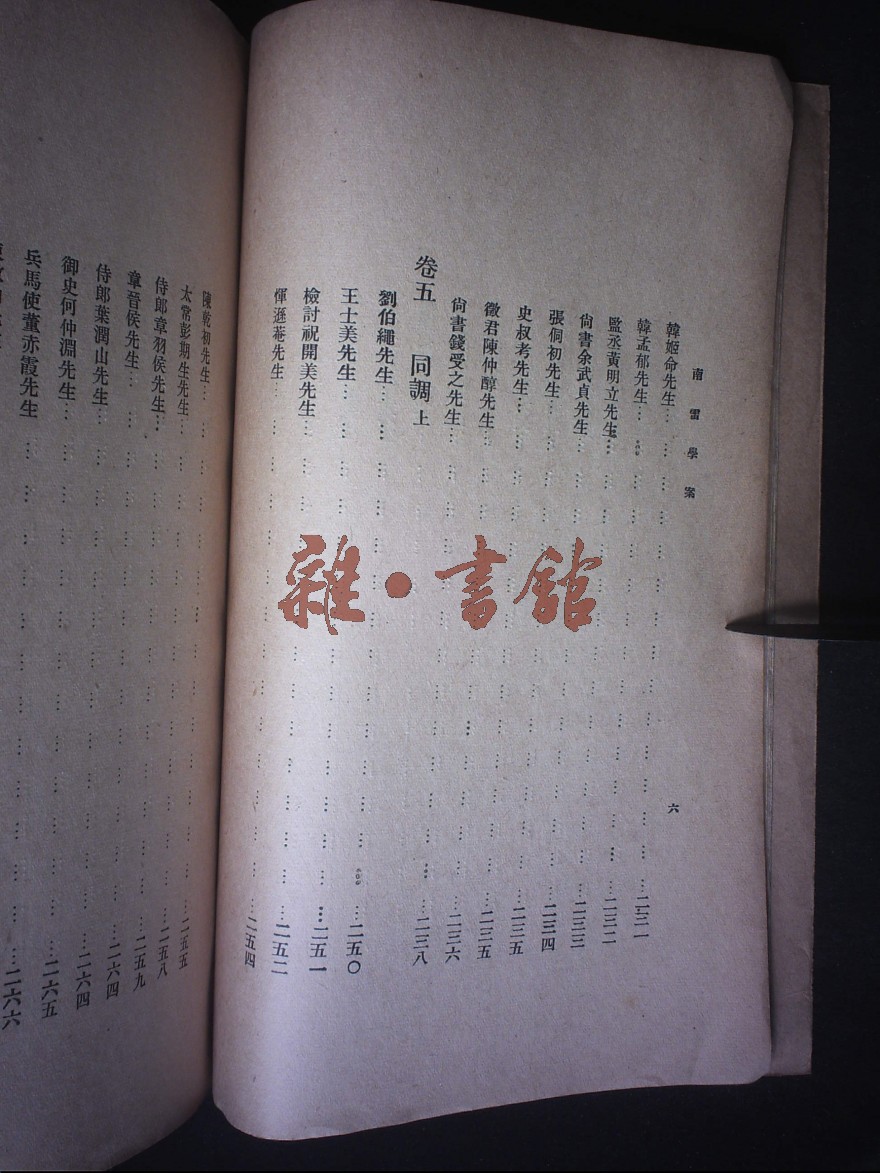 南雷學案 六
韓姬命先生……二三一
韓孟郁先生……二三二
監丞黃明立先生……二三三
尙書余武貞先生……二三四
張侗初先生……二三五
史叔考先生……二三五
徵君陳仲醇先生……二三六
尙書錢受之先生……二三八
卷五 同調上
劉伯繩先生……二五〇
王士美先生……二五一
檢討祝開美先生……二五二
惲遜菴先生……二五四
陳乾初先生……二五五
太常彭期生先生……二五八
侍郎章羽侯先生……二五九
章晉侯先生……二六四
侍郎葉潤山先生……二六四
御史何仲淵先生……二六五
兵馬使董赤霞先生……二六六
雜·書館